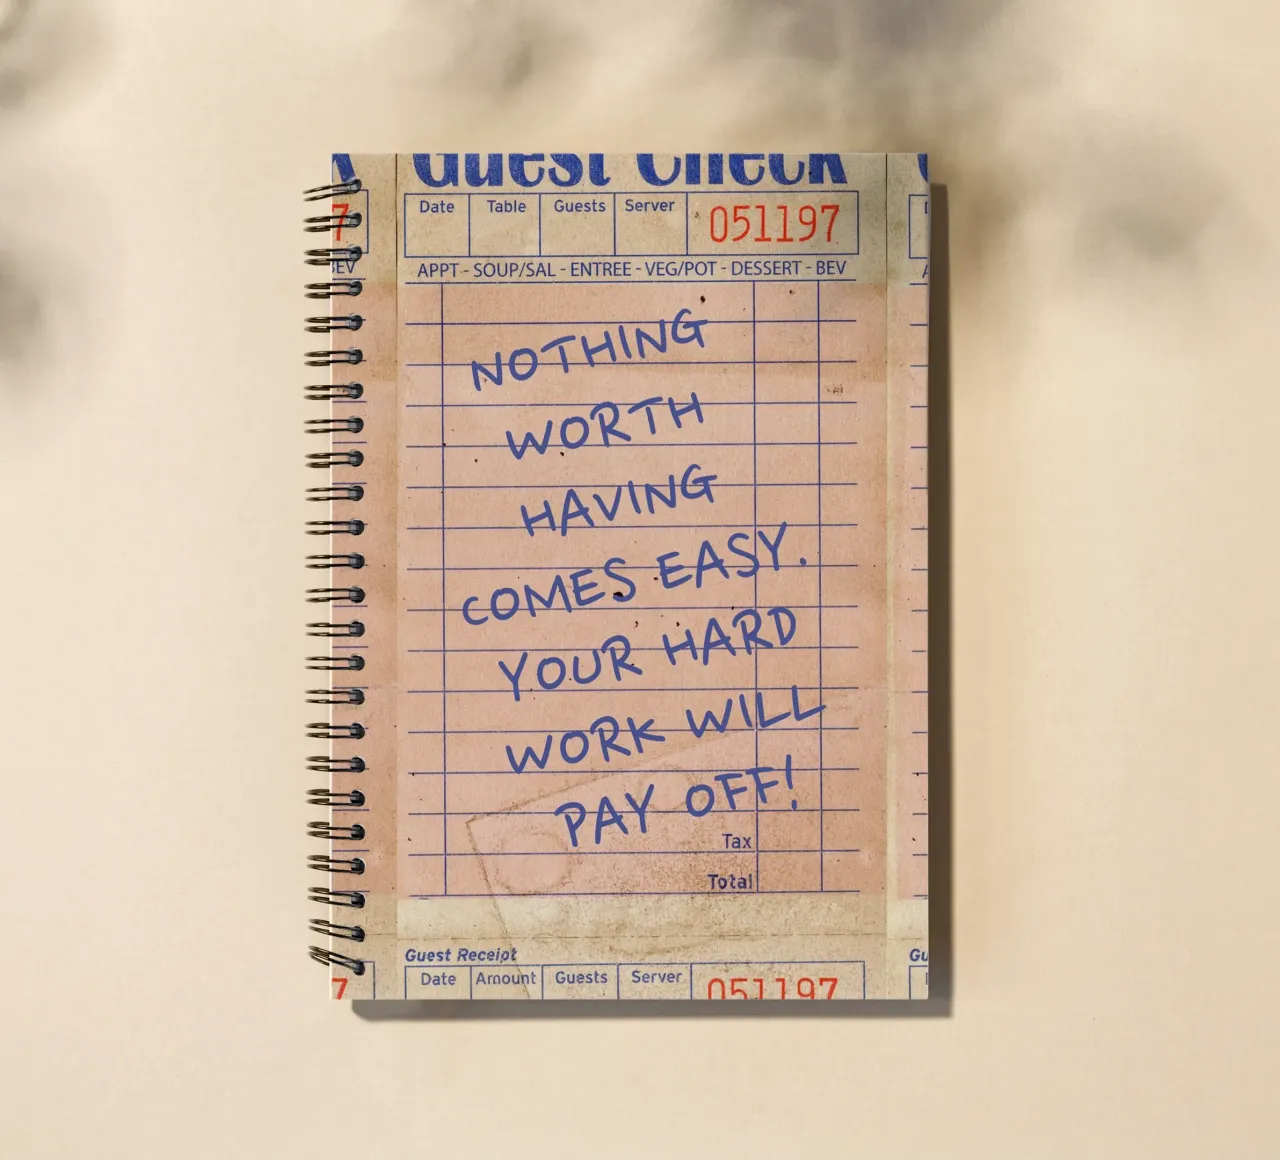 Guest Check
Date Table Guests Server 051197
APPT - SOUP/SAL - ENTREE - VEG/POT - DESSERT - BEV
NOTHING
WORTH
HAVING
COMES EASY.
YOUR HARD
WORK WILL
PAY OFF!
Tax
Total
Guest Receipt
Date Amount Guests Server 051197
7
BEV
7
Gu